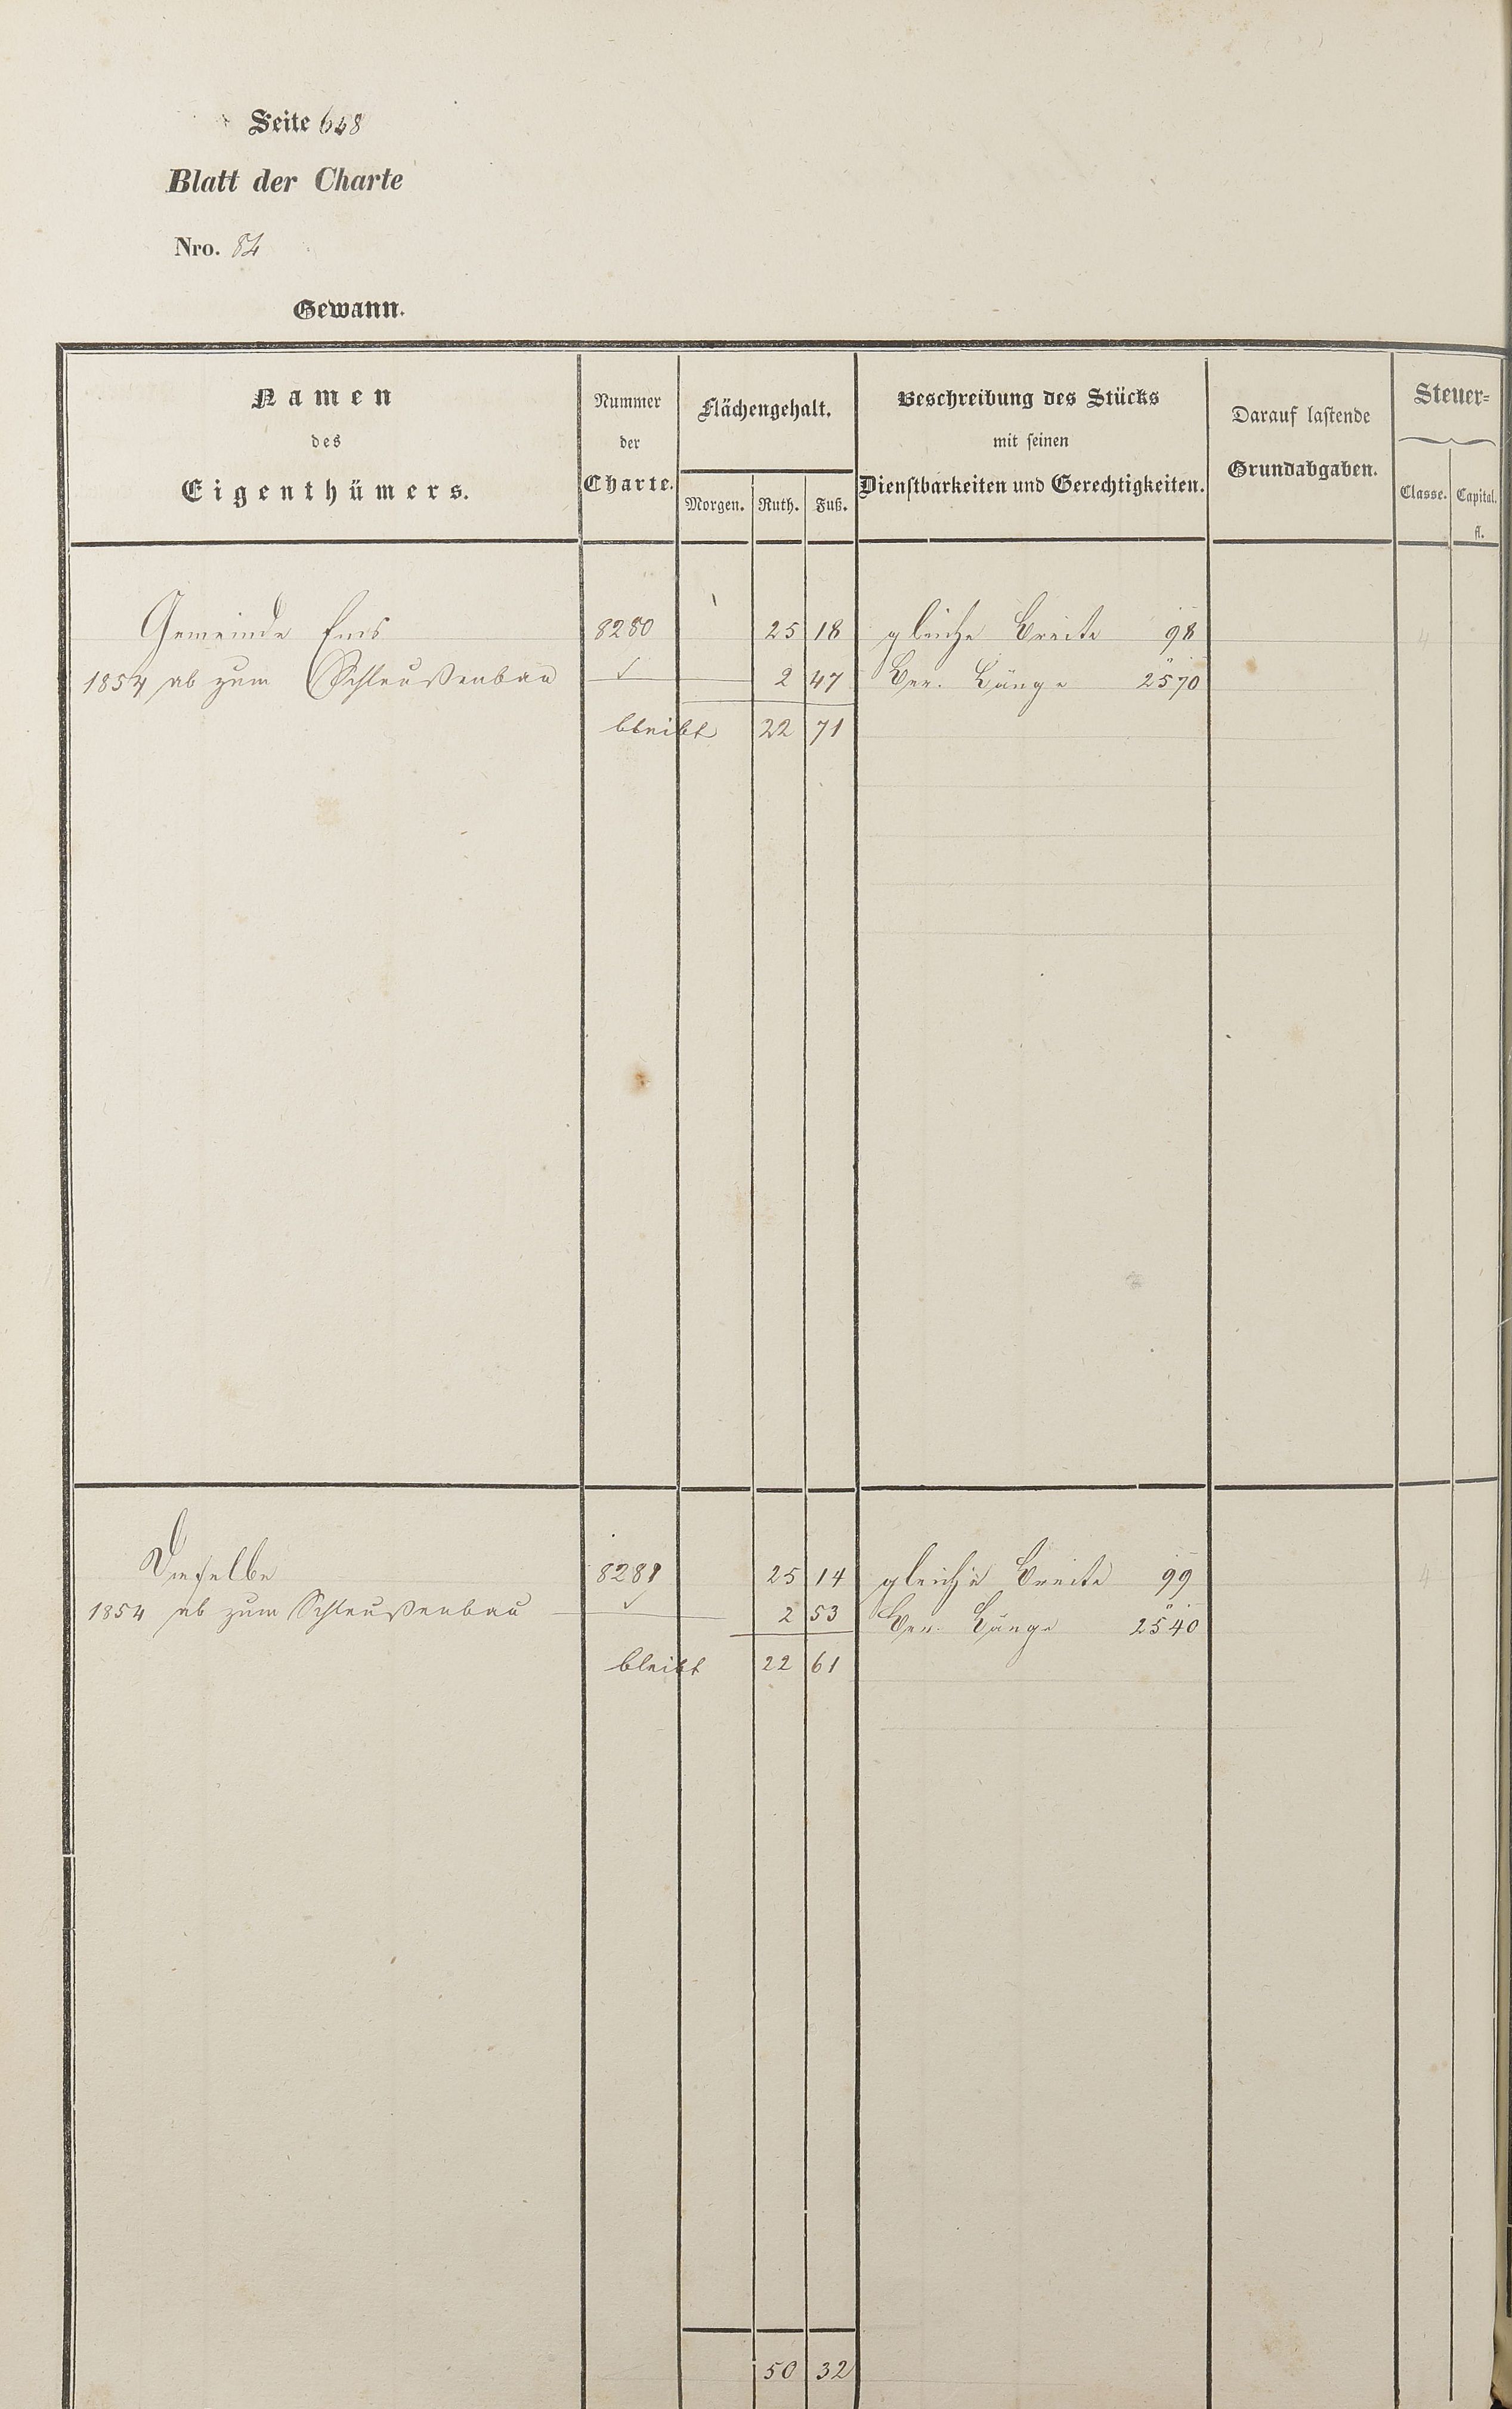 Seite 648
Blatt der Charte
Nro. 84
Gewann.
Namen des Eigenthümers.
Nummer der Charte.
Flächengehalt.
Morgen. Ruth. Fuß.
Beschreibung des Stücks mit seinen Dienstbarkeiten und Gerechtigkeiten.
Darauf lastende Grundabgaben.
Steuer=
Classe. Capital. fl.
Gemeinde Ems 8280 25 18 gleiche Breite 98 4
1854 ab zum Schleußenbau 2 47 Ver. Länge 2570
bleibt 22 71
Dieselbe 8281 25 14 gleiche Breite 99 4
1854 ab zum Schleußenbau 2 53 Ver. Länge 2540
bleibt 22 61
50 32